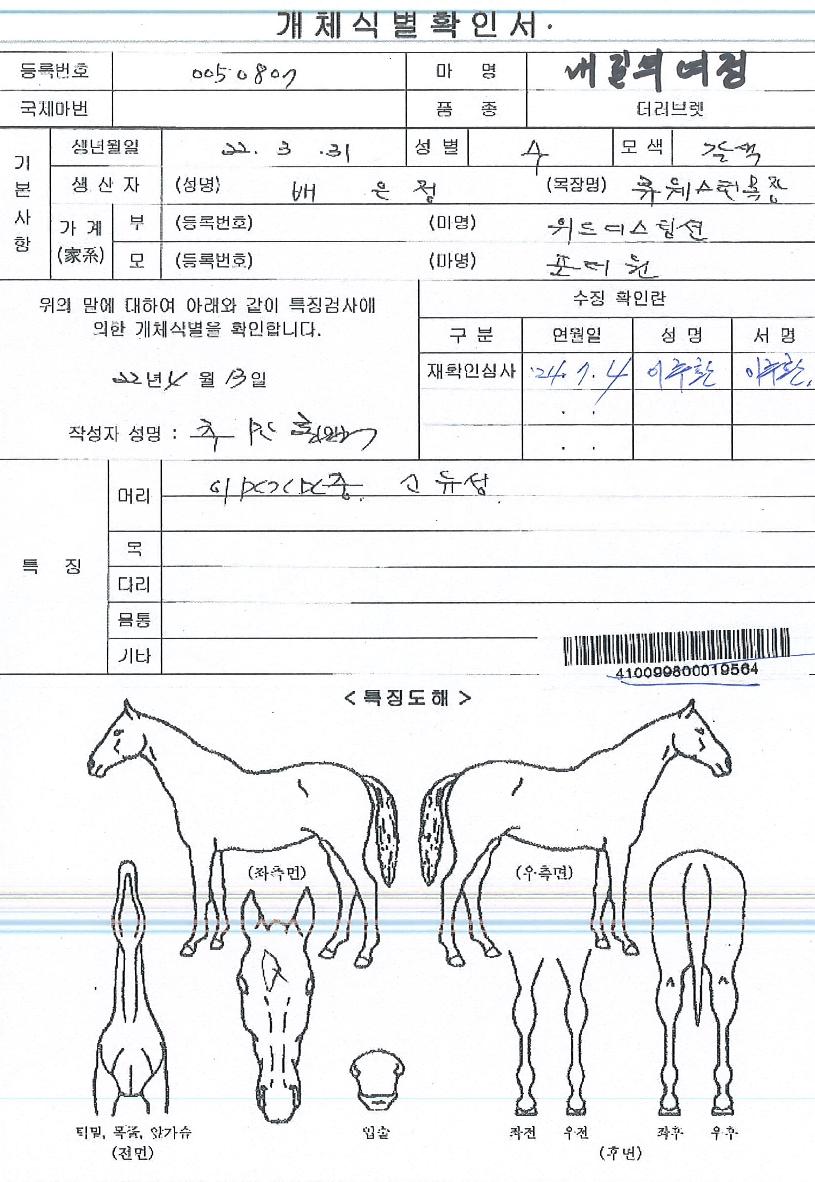 개체식별확인서.
등록번호 0050807 마 명 내길의여정
국제마번 품 종 더러브렛
기본사항
생년월일 22. 3 .31 성별 수 모색 갈색
생산자 (성명) 배 은 정 (목장명)
가계 (家系) 부 (등록번호) (마명) 위드디스팅션
모 (등록번호) (마명) 포머원
위의 말에 대하여 아래와 같이 특징검사에
의한 개체식별을 확인합니다.
22년 4 월 13일
작성자 성명 :
수징 확인란
구 분 연월일 성 명 서 명
재확인심사 '24. 7. 4 이주환 이주환.
. .
. .
특 징
머리
목
다리
몸통
기타
410099800019564
<특징도해>
(좌측면) (우측면)
턱밑, 목줄, 앞가슴 입술 좌전 우전 좌후 우후
(전면) (후면)